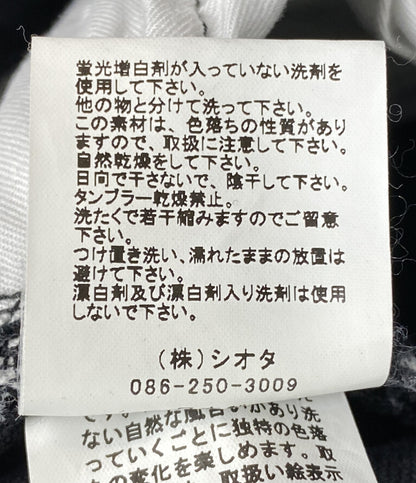 蛍光増白剤が入っていない洗剤を
使用して下さい。
他の物と分けて洗って下さい。
この素材は、色落ちの性質があり
ますので、取扱に注意して下さい。
自然乾燥をして下さい。
日向で干さないで、陰干して下さい。
タンブラー乾燥禁止。
洗たくで若干縮みますのでご留意
下さい。
つけ置き洗い、濡れたままの放置は
避けて下さい。
漂白剤及び漂白剤入り洗剤は使用
しないで下さい。
(株)シオタ
086-250-3009
です。自然な風合いがあり洗
ない自然な色落
っていくごとに独特の色落
の変化を楽しめます。取
取扱い絵表示